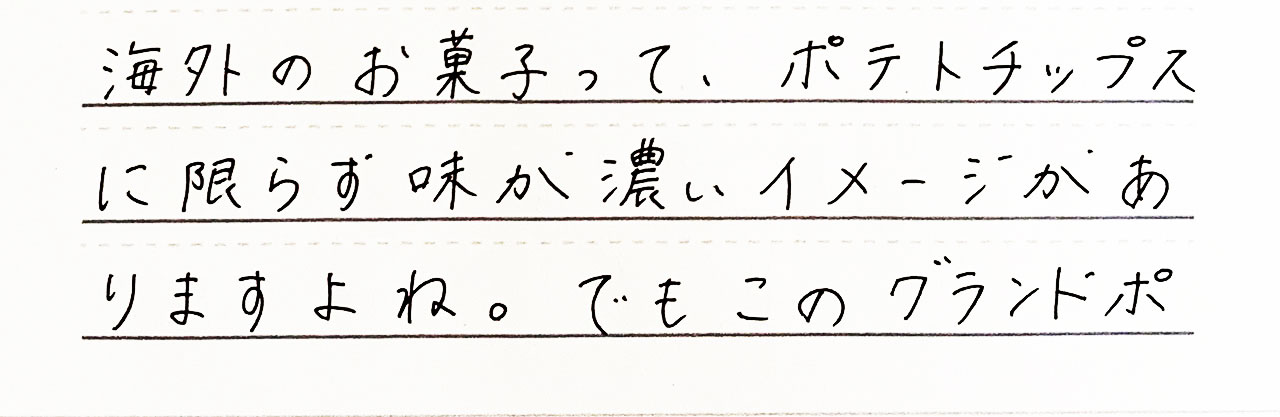 海外のお菓子って、ポテトチップス
に限らず味が濃いイメージがあ
りますよね。でもこのグランドポ